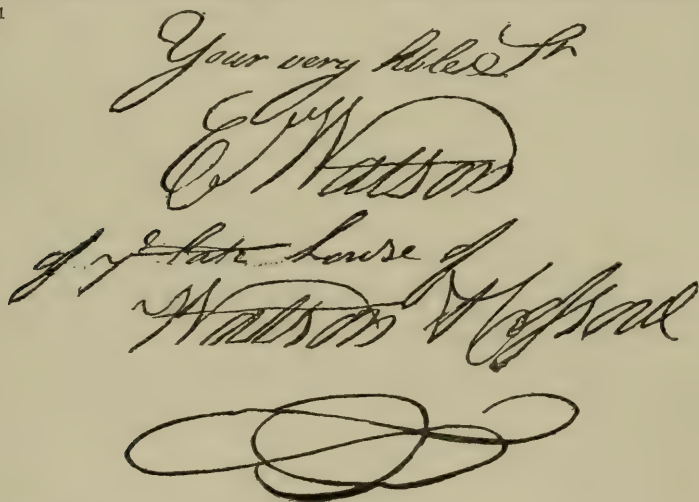 1
Your very hble St
E Watson
of ye late house of
Watson & Cossoul